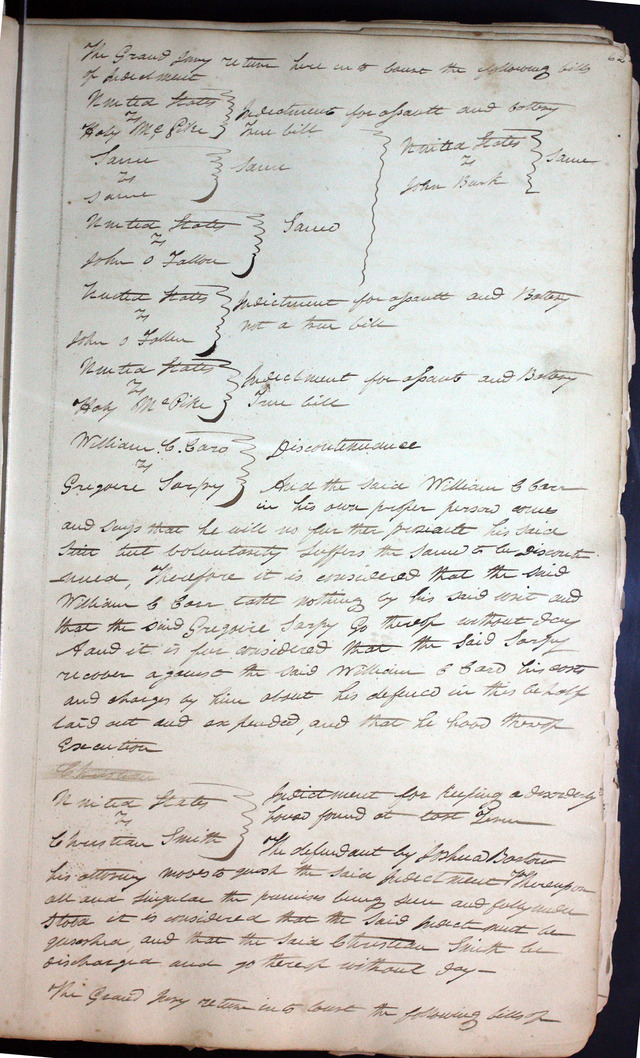 62
The Grand Jury return here into Court the following bills
of Indictment
United States
vs
Haby McPike
Indictment for assault and battery
True bill
Same
vs
Same
Same
United States
vs
John Burk
Same
United States
vs
John O Fallon
Same
United States
vs
John O Fallon
Indictment for assault and Battery
not a true bill
United States
vs
Haby McPike
Indictment for assault and Battery
True bill
William C. Carr
vs
Gregoire Sarpy
Discontinuance
And the said William C Carr
in his own proper person comes
and says that he will no further prosecute his said
Suit but voluntarily suffers the same to be discontin
nued, Therefore it is considered that the said
William C Carr take nothing by his said writ and
that the said Gregoire Sarpy Go thereof without day
And it is fur considered that the said Sarpy
recover against the said William C Carr his costs
and charges by him about his defence in this behalf
laid out and expended, and that he have thereof
Execution
Christian
United States
vs
Christian Smith
Indictment for keeping a disorderly
house found at last Term
The defendant by Joshua Barton
his attorney moves to quash the said Indictment Thereupon
all and singular the premises being seen and fully under
stood it is considered that the said Indictment be
quashed, and that the said Christian Smith be
discharged and go thereof without day —
The Grand Jury return into Court the following bills of